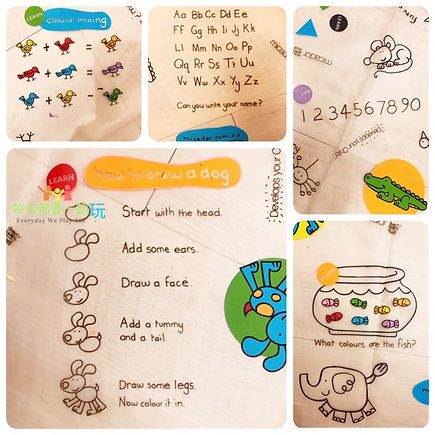 LEARN
colour mixing
Aa Bb Cc Dd Ee
Ff Gg Hh Ii Jj Kk
Ll Mm Nn Oo Pp
Qq Rr Ss Tt Uu
Vv Ww Xx Yy Zz
Can you write your name?
micador.com.au
micador
1 2 3 4 5 6 7 8 9 0
LEARN
how to draw a dog
Develops your C
每
玩
Everyday We Play 365
Start with the head.
Add some ears.
Draw a face.
Add a tummy
and a tail.
Draw some legs.
Now colour it in.
What colours are the fish?